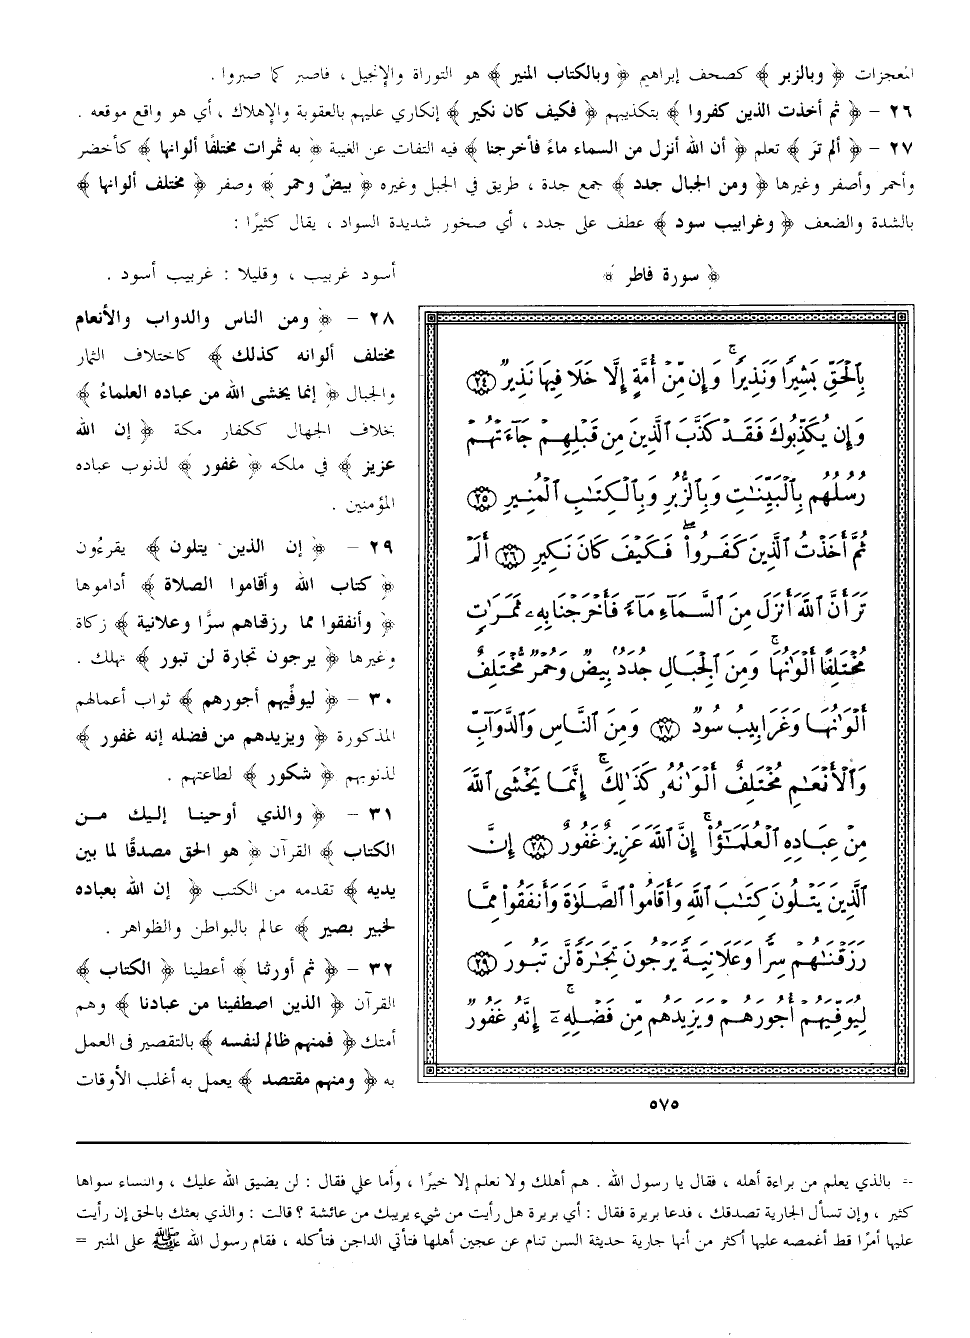 المعجزات ﴿ وبالزبر ﴾ كصحف إبراهيم ﴿ وبالكتاب المنير ﴾ هو التوراة والإنجيل ، فاصبر كما صبروا .
٢٦ - ﴿ ثم أخذت الذين كفروا ﴾ بتكذيبهم ﴿ فكيف كان نكير ﴾ إنكاري عليهم بالعقوبة والإهلاك ، أي هو واقع موقعه .
٢٧ - ﴿ ألم تر ﴾ تعلم ﴿ أن الله أنزل من السماء ماءً فأخرجنا ﴾ فيه التفات عن الغيبة ﴿ به ثمرات مختلفًا ألوانها ﴾ كأخضر
وأحمر وأصفر وغيرها ﴿ ومن الجبال جدد ﴾ جمع جدة ، طريق في الجبل وغيره ﴿ بيضٌ وحمر ﴾ وصفر ﴿ مختلف ألوانها ﴾
بالشدة والضعف ﴿ وغرابيب سود ﴾ عطف على جدد ، أي صخور شديدة السواد ، يقال كثيرًا :
﴿ سورة فاطر ﴾
بِالْحَقِّ بَشِيرًا وَنَذِيرًا ۚ وَإِن مِّنْ أُمَّةٍ إِلَّا خَلَا فِيهَا نَذِيرٌ ﴿٢٤﴾
وَإِن يُكَذِّبُوكَ فَقَدْ كَذَّبَ الَّذِينَ مِن قَبْلِهِمْ جَاءَتْهُمْ
رُسُلُهُم بِالْبَيِّنَٰتِ وَبِالزُّبُرِ وَبِالْكِتَٰبِ الْمُنِيرِ ﴿٢٥﴾
ثُمَّ أَخَذْتُ الَّذِينَ كَفَرُوا ۖ فَكَيْفَ كَانَ نَكِيرِ ﴿٢٦﴾ أَلَمْ
تَرَ أَنَّ اللَّهَ أَنزَلَ مِنَ السَّمَاءِ مَاءً فَأَخْرَجْنَا بِهِ ثَمَرَٰتٍ
مُّخْتَلِفًا أَلْوَٰنُهَا ۚ وَمِنَ الْجِبَالِ جُدَدٌ بِيضٌ وَحُمْرٌ مُّخْتَلِفٌ
أَلْوَٰنُهَا وَغَرَابِيبُ سُودٌ ﴿٢٧﴾ وَمِنَ النَّاسِ وَالدَّوَابِّ
وَالْأَنْعَٰمِ مُخْتَلِفٌ أَلْوَٰنُهُ كَذَٰلِكَ ۗ إِنَّمَا يَخْشَى اللَّهَ
مِنْ عِبَادِهِ الْعُلَمَٰؤُا ۗ إِنَّ اللَّهَ عَزِيزٌ غَفُورٌ ﴿٢٨﴾ إِنَّ
الَّذِينَ يَتْلُونَ كِتَٰبَ اللَّهِ وَأَقَامُوا الصَّلَوٰةَ وَأَنفَقُوا مِمَّا
رَزَقْنَٰهُمْ سِرًّا وَعَلَانِيَةً يَرْجُونَ تِجَٰرَةً لَّن تَبُورَ ﴿٢٩﴾
لِيُوَفِّيَهُمْ أُجُورَهُمْ وَيَزِيدَهُم مِّن فَضْلِهِ ۚ إِنَّهُ غَفُورٌ
أسود غربيب ، وقليلا : غربيب أسود .
٢٨ - ﴿ ومن الناس والدواب والأنعام
مختلف ألوانه كذلك ﴾ كاختلاف الثمار
والجبال ﴿ إنما يخشى الله من عباده العلماءُ ﴾
بخلاف الجهال ككفار مكة ﴿ إن الله
عزيز ﴾ في ملكه ﴿ غفور ﴾ لذنوب عباده
المؤمنين .
٢٩ - ﴿ إن الذين يتلون ﴾ يقرءُون
﴿ كتاب الله وأقاموا الصلاة ﴾ أداموها
﴿ وأنفقوا مما رزقناهم سرًّا وعلانية ﴾ زكاة
وغيرها ﴿ يرجون تجارة لن تبور ﴾ تهلك .
٣٠ - ﴿ ليوفِّيهم أجورهم ﴾ ثواب أعمالهم
المذكورة ﴿ ويزيدهم من فضله إنه غفور ﴾
لذنوبهم ﴿ شكور ﴾ لطاعتهم .
٣١ - ﴿ والذي أوحينا إليك من
الكتاب ﴾ القرآن ﴿ هو الحق مصدقًا لما بين
يديه ﴾ تقدمه من الكتب ﴿ إن الله بعباده
لخبير بصير ﴾ عالم بالبواطن والظواهر .
٣٢ - ﴿ ثم أورثنا ﴾ أعطينا ﴿ الكتاب ﴾
القرآن ﴿ الذين اصطفينا من عبادنا ﴾ وهم
أمتك ﴿ فمنهم ظالم لنفسه ﴾ بالتقصير في العمل
به ﴿ ومنهم مقتصد ﴾ يعمل به أغلب الأوقات
٥٧٥
= بالذي يعلم من براءة أهله ، فقال يا رسول الله . هم أهلك ولا نعلم إلا خيرًا ، وأما علي فقال : لن يضيق الله عليك ، والنساء سواها
كثير ، وإن تسأل الجارية تصدقك ، فدعا بريرة فقال : أي بريرة هل رأيت من شيء يريبك من عائشة ؟ قالت : والذي بعثك بالحق إن رأيت
عليها أمرًا قط أغمصه عليها أكثر من أنها جارية حديثة السن تنام عن عجين أهلها فتأتي الداجن فتأكله ، فقام رسول الله ﷺ على المنبر =